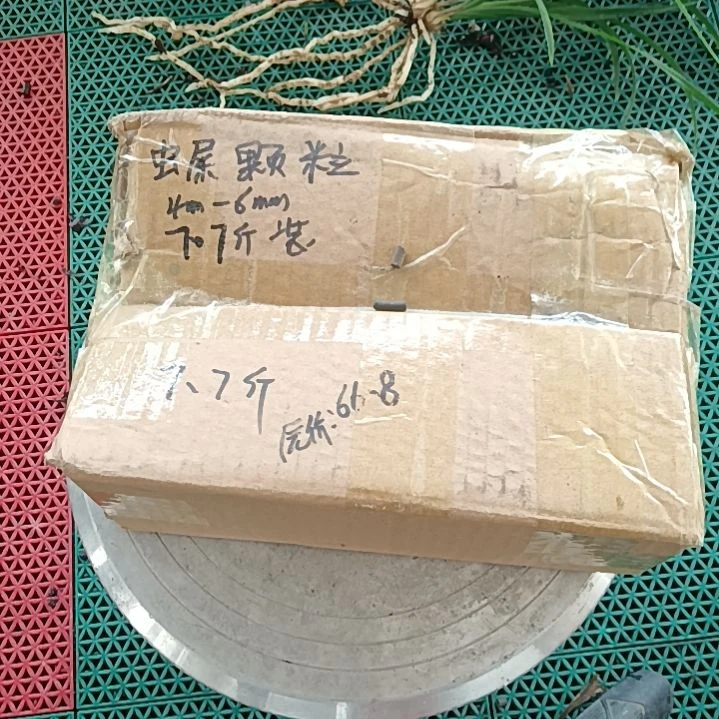 虫屎颗粒
4m-6mm
7.7斤装
7.7斤
原价:61.8